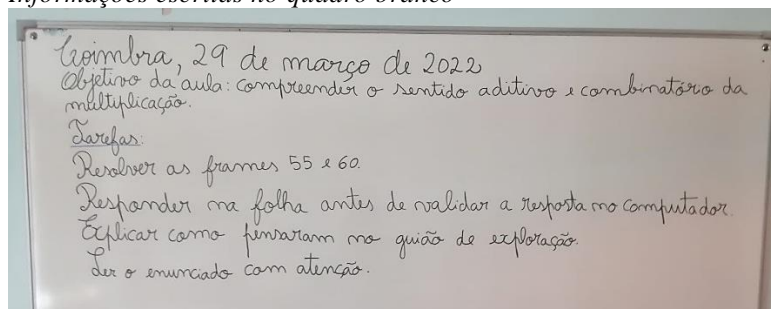 Informações escritas no quadro branco
Coimbra, 29 de março de 2022
Objetivo da aula: compreender o sentido aditivo e combinatório da
multiplicação.
Tarefas:
Resolver as frames 55 e 60.
Responder na folha antes de validar a resposta no computador.
Explicar como pensaram no guião de exploração.
Ler o enunciado com atenção.